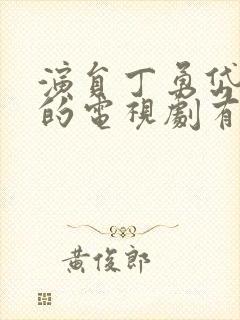 演員丁勇岱
的電視劇有
黃俊郎